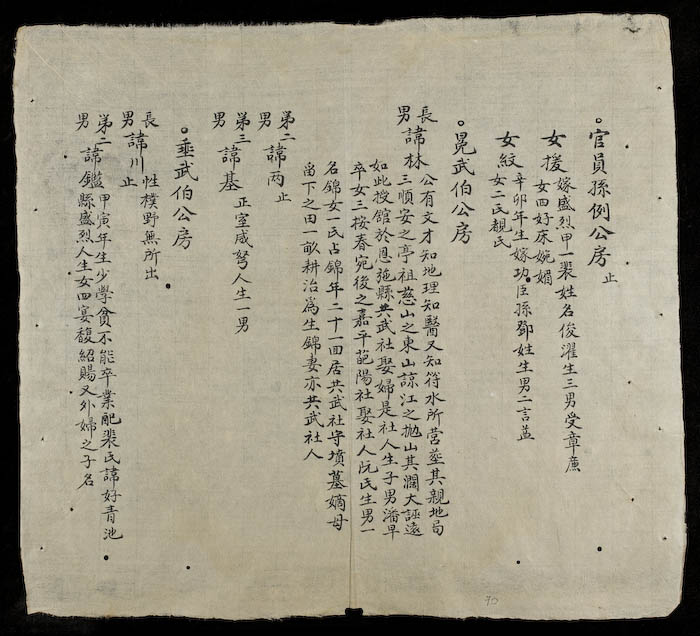 官員孫例公房止
女援嫁盛烈甲一裴姓名俊濯生三男受章廉
女四好床婉媚
女紋辛卯年生嫁功臣孫鄧姓生男二言益
女二氏親氏
晃武伯公房
長男諱林公有文才知地理知醫又知符水所営塟其親地局
三順安之亭祖慈山之東山諒江之拋山其濶大誣遠
如此授舘於恩施縣共武社娶婦是社人生子男潘早
卒女三按春宛後之嘉平葩陽社娶社人阮氏生男一
名錦女一氏占錦年二十一回居共武社守墳墓嫡母
留下之田一畝耕治爲生錦妻亦共武社人
第二男諱两止
第三男諱基正室咸弩人生一男
垂武伯公房
長男諱川止性樸野無所出
第二男諱鑑甲寅年生少學貧不能卒業配裴氏諱好青池
縣盛烈人生女四宴馥紹賜又外婦之子名
70